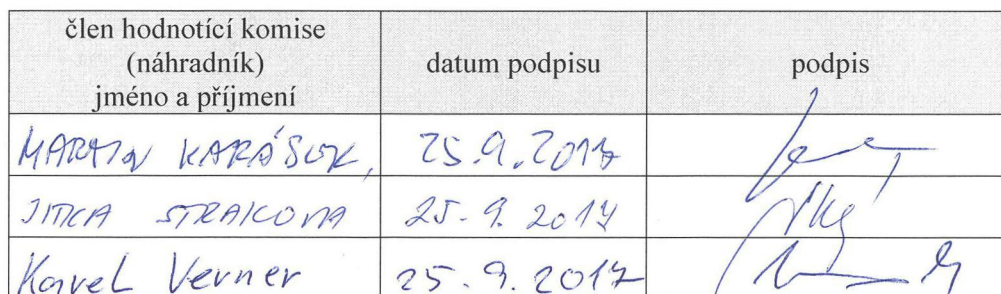 člen hodnotící komise
(náhradník)
jméno a příjmení
datum podpisu
podpis
MARTIN KARÁSEK, 25.9.2017
JITKA STRAKOVA 25.9.2017
Karel Verner 25.9.2017